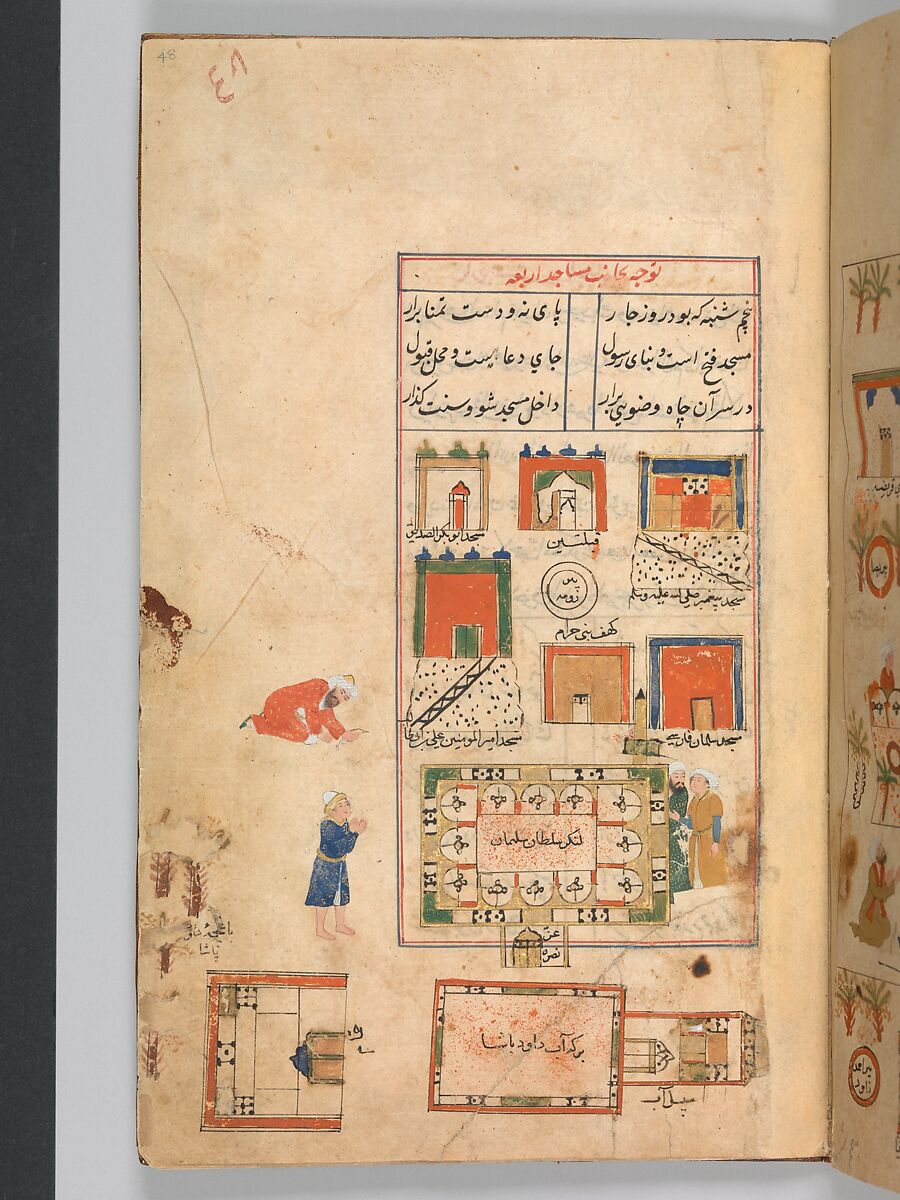 48
توجه بجانب مساجد اربعه
پنجم شنبه که بود روز جار پای نه و دست تمنا برار
مسجد فتح است و بنای رسول جای دعا هست و محل قبول
در سرآن چاه وضویی برار داخل مسجد شو و سنت گذار
مسجد ابو بکر الصدیق
قبلتین
مسجد پیغمبر صلی الله علیه وسلم
بیر
رومه
کهف بنی حرام
مسجد امیر المومنین علی
مسجد سلمان فارسی
لنکر سلطان سلیمان
پاشا
برکه آب داود پاشا
سبیل آب